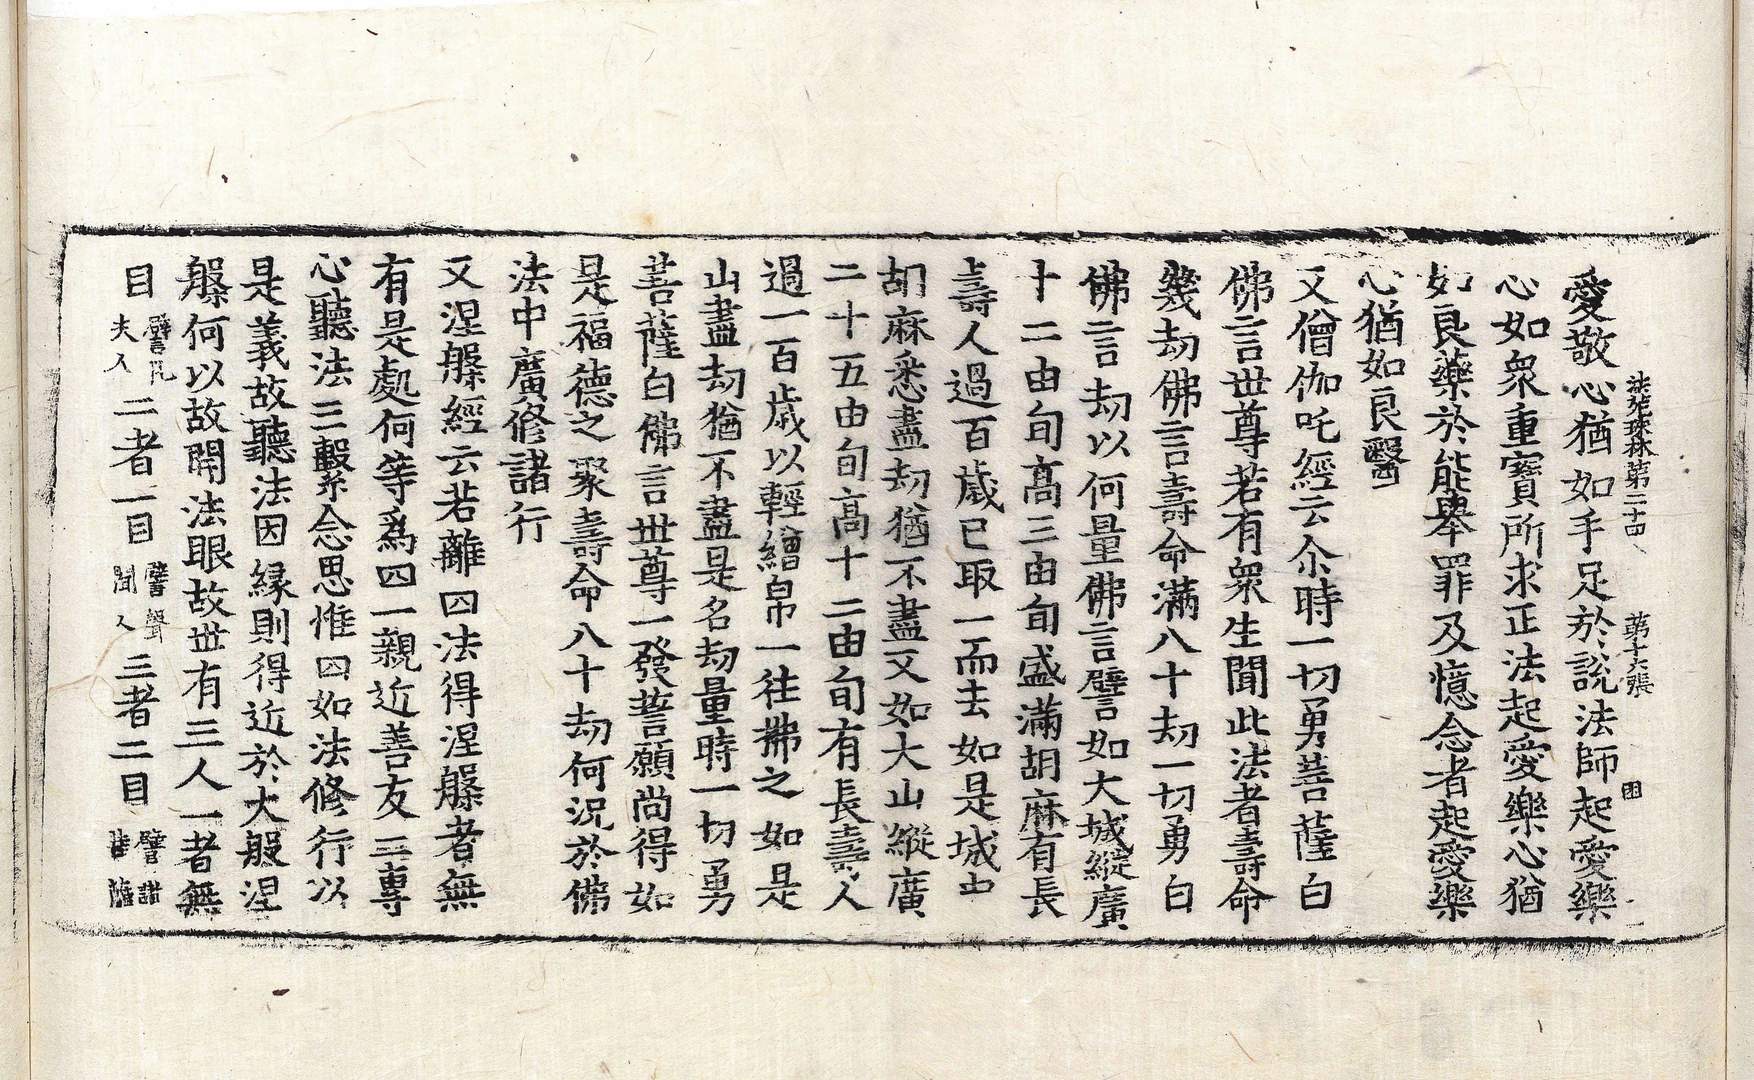 法苑珠林第二十四　第十六張　困
愛敬心猶如手足於說法師起愛樂
心如衆重寶所求正法起愛樂心猶
如良藥於能舉罪及憶念者起愛樂
心猶如良醫
又僧伽吒經云尒時一切勇菩薩白
佛言世尊若有衆生聞此法者壽命
幾劫佛言壽命滿八十劫一切勇白
佛言劫以何量佛言譬如大城縱廣
十二由旬髙三由旬盛滿胡麻有長
壽人過百歲已取一而去如是城中
胡麻悉盡劫猶不盡又如大山縱廣
二十五由旬髙十二由旬有長壽人
過一百歲以輕繒帛一往拂之如是
山盡劫猶不盡是名劫量時一切勇
菩薩白佛言世尊一發誓願尚得如
是福德之聚壽命八十劫何況於佛
法中廣修諸行
又涅槃經云若離四法得涅槃者無
有是處何等爲四一親近善友二專
心聽法三繫念思惟四如法修行以
是義故聽法因緣則得近於大般涅
槃何以故開法眼故世有三人一者無
目譬凡夫人二者一目譬聲聞人三者二目譬諸菩薩